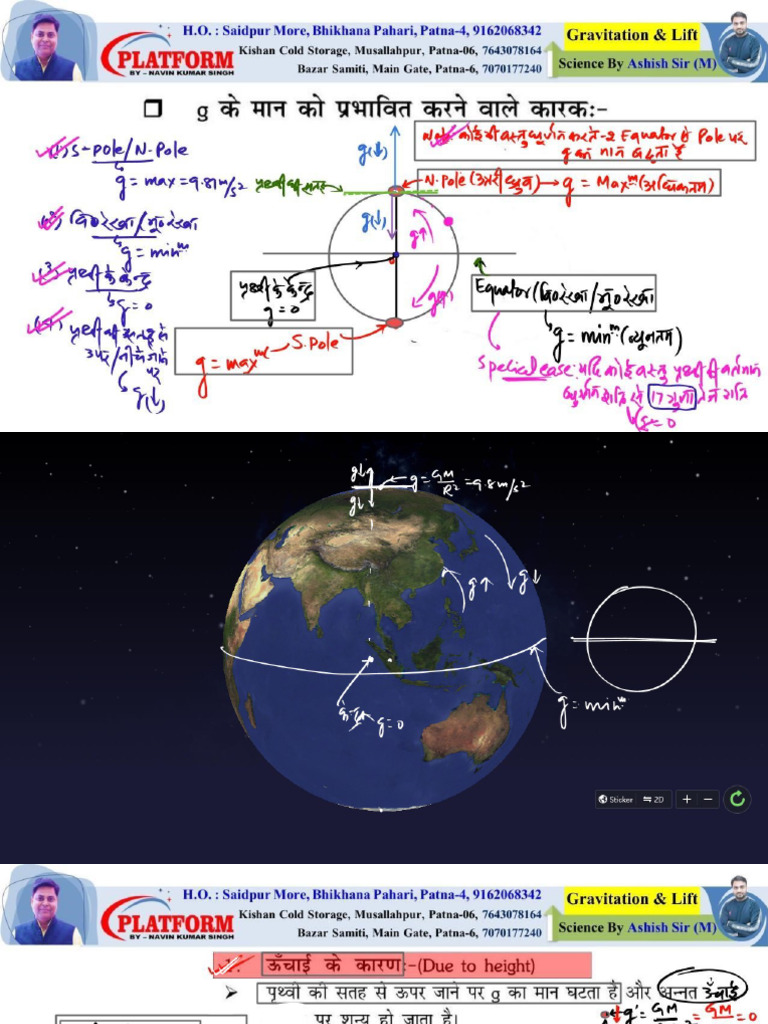 H.O. : Saidpur More, Bhikhana Pahari, Patna-4, 9162068342
Kishan Cold Storage, Musallahpur, Patna-06, 7643078164
Bazar Samiti, Main Gate, Patna-6, 7070177240
PLATFORM
BY – NAVIN KUMAR SINGH
Gravitation & Lift
Science By Ashish Sir (M)
g के मान को प्रभावित करने वाले कारक:-
(1) S-Pole/N.Pole
g = max = 9.81 m/s2
g(↓)
Equator से Pole पर
g का मान बढ़ता है
पृथ्वी की सतह
N.Pole (उत्तरी ध्रुव) → g = Maxm (अधिकतम)
g(↓)
g↑
g = minm
(3) पृथ्वी के केन्द्र
g = 0
पृथ्वी के केन्द्र
g = 0
g = maxm
S.Pole
Equator
g = minm (न्यूनतम)
g(↓)
17 गुना
g = 0
g↓
g↓
g = GM/R2 = 9.8 m/s2
g↑
g↓
g = minm
g = 0
Sticker
2D
+
−
H.O. : Saidpur More, Bhikhana Pahari, Patna-4, 9162068342
Kishan Cold Storage, Musallahpur, Patna-06, 7643078164
Bazar Samiti, Main Gate, Patna-6, 7070177240
PLATFORM
BY – NAVIN KUMAR SINGH
Gravitation & Lift
Science By Ashish Sir (M)
ऊँचाई के कारण:-(Due to height)
पृथ्वी की सतह से ऊपर जाने पर g का मान घटता है और अन्नत ऊँचाई
पर शून्य हो जाता है।
g' = GM = GM = 0